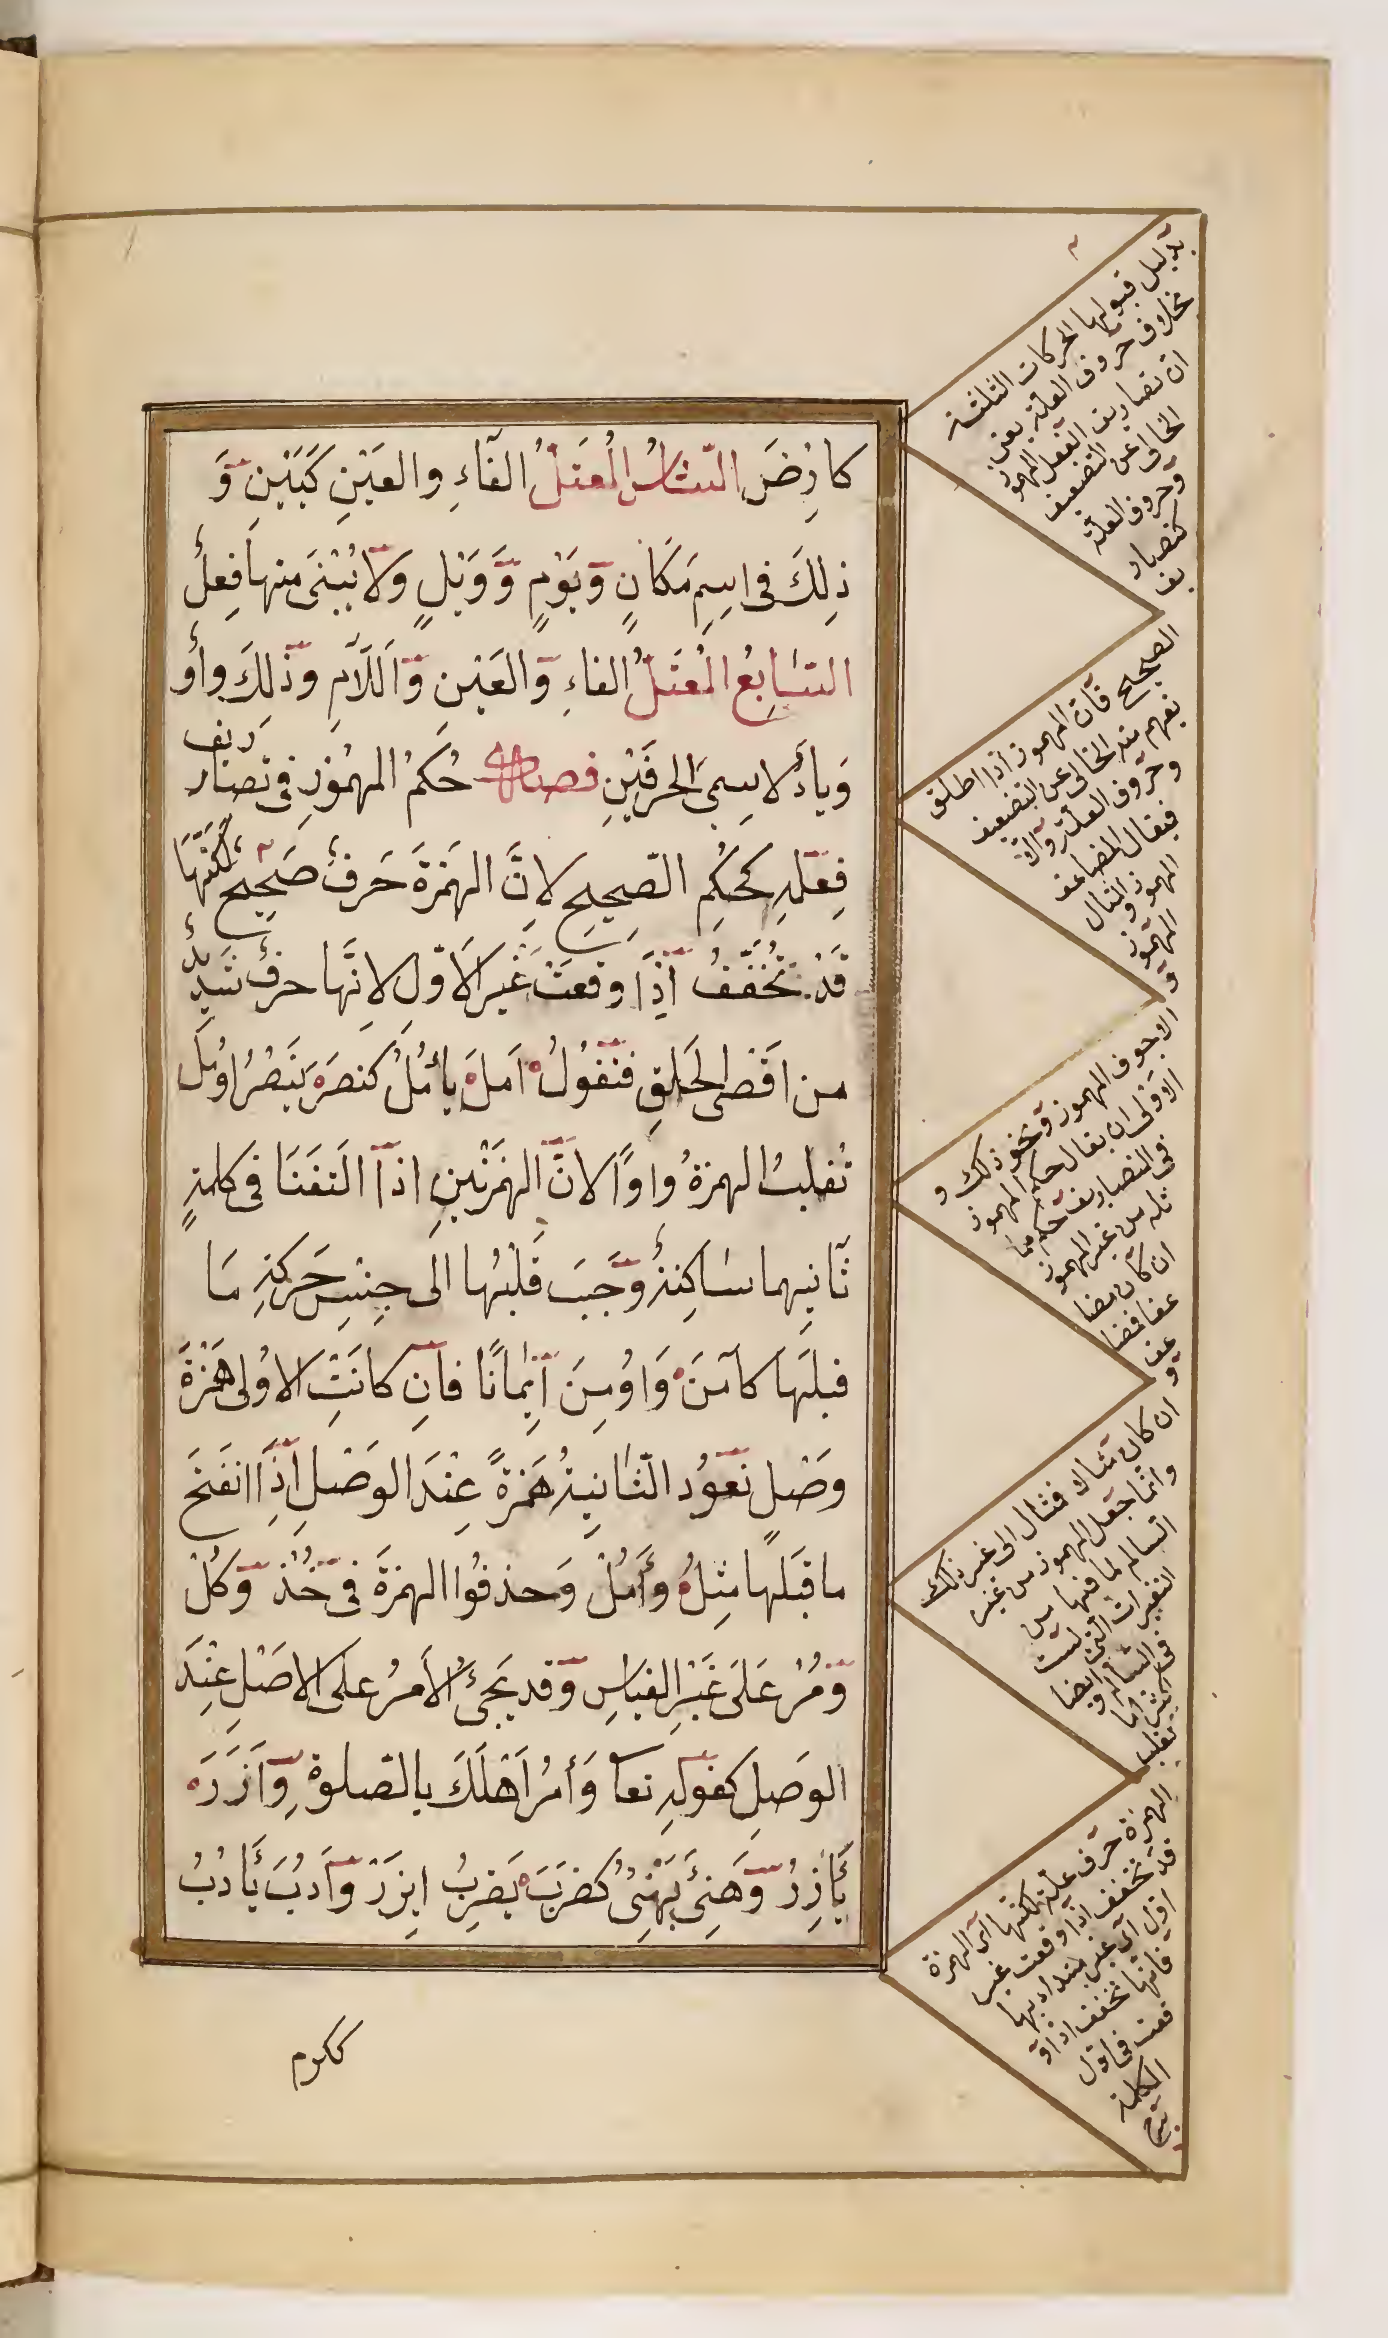 كارْضَ السّادسُ المُعتَلُّ الفَآءِ والعَيْنِ كَيَيْنٍ وَ
ذلِكَ فى اسِمِ مَكَانٍ وَيَوْمٍ وَوَيْلٍ وَلا يُبْنىَ منها فِعلٌ
السّابِعُ المُعتَلُّ الفاءِ وَالعَيْنِ وَاللّامِ وَذلكَ واوٌ
وَياءٌ لاسِمىَ الحرفَيْنِ فصل حُكمُ المهمُوزِ فى تصاريف
فِعلهِ كحُكمِ الصّحِيحِ لاِنَّ الهَمْزةَ حَرفٌ صَحِيحٌ لكنَّهَا
قَدْ تُخَفَّفُ اِذَا وقعتْ غَيرَ الاَوّلِ لانَّها حرفٌ شَدِيدٌ
من اقَصْىَ الحَلقِ فتَقُولُ اَملَ يأمُلُ كنصَرَ يَنصُرُ اوُمُل
تُقلبُ الهمزةُ واوًا لانَّ الهمْزتَيْنِ اذا التَقتَا فى كلمةٍ
ثَانِيهما سَاكِنةٌ وَجَبَ قَلْبُها الى جِنْسِ حَركَةِ مَا
قبلَها كآمَنَ وَاوُمِنَ اِيْمانًا فاِن كانَتِ الاوُلى هَمْزةَ
وَصْلٍ تَعوُد الثّانِيةُ هَمزةً عِنْدَ الوَصْلِ اِذَا انفَتَح
ما قبَلَها مثِلُ وَأمُلْ وَحذفوُا الهمزةَ فى خُذْ وَكُلْ
وَمُرْ عَلىَ غَيْرِ القياسِ وَقد يَجئُ الأَمرُ علىَ الاصْلِ عِنْدَ
الوَصلِ كقولهِ تعا وَأمُرْ اَهْلَكَ بالصّلوةِ وَاَزَرَ
يَأزِرُ وَهَنئَ يَهْنِئُ كضَربَ يَضرِبُ ايزِرْ وَاَدُبَ يَأدُبُ
ككرم
بدليل قبولها الحركات الثلثة
بخلاف حروف العلة يعنى
ان تصاريف الفعل المهموز
الخالى عن التضعيف
وحروف العلة
كتصاريف
الصحيح فان المهموز اذا اطلق
يفهم منه الخالى عن التضعيف
وحروف العلة والا
فيقال المضاعف
المهموز والمثال
المهموز
و
الاجوف المهموز ونحو ذلك و
الاولى ان يقال حكم المهموز
فى التصاريف حكم مما
ثله من غير المهموز
ان كان مضا
عفا فمضا
عف
و
ان كان مثالا فمثال الى غير ذلك
وانما جعل المهموز من غير
السالم لما فيها من
التغيرات التى ليست
فى السالم وايضا
كثيرا ما
تقلب
الهمزة حرف علة لكنها اى الهمزة
قد تخفف اذا وقعت غير
اول اى غير مبتداء بها
فانها تخفف اذا و
قعت فى اول
الكلمة
شرح